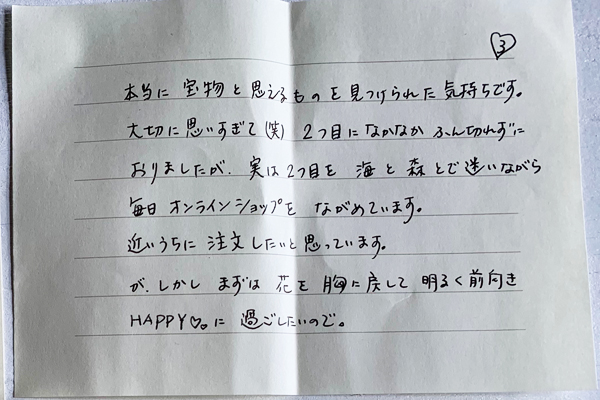 3
本当に 宝物と思えるものを見つけられた気持ちです。
大切に思いすぎて(笑) 2つ目になかなか ふん切れずに
おりましたが、実は2つ目を 海と森とで迷いながら
毎日 オンラインショップを ながめています。
近いうちに 注文したいと思っています。
が、しかし まずは 花を 胸に戻して 明るく前向き
HAPPY♡♡に 過ごしたいので。